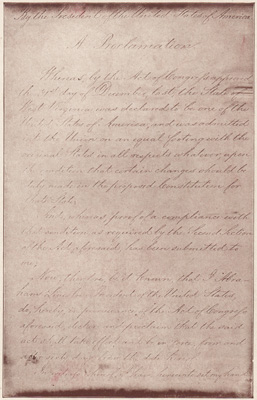 By the President of the United States of America
A Proclamation.
Whereas, by the Act of Congress approved
the 31st day of December, last, the State of
West Virginia was declared to be one of the
United States of America, and was admitted
into the Union on an equal footing with the
original States in all respects whatever, upon
the condition that certain changes should be
duly made in the proposed Constitution for
that State;
And, whereas, proof of a compliance with
that condition as required by the Second Section
of the Act aforesaid, has been submitted to
me;
Now, therefore, be it known that I, Abra-
ham Lincoln, President of the United States,
do, hereby, in pursuance of the Act of Congress
aforesaid, declare and proclaim that the said
act shall take effect and be in force, from and
after sixty days from the date hereof.
In witness whereof, I have hereunto set my hand